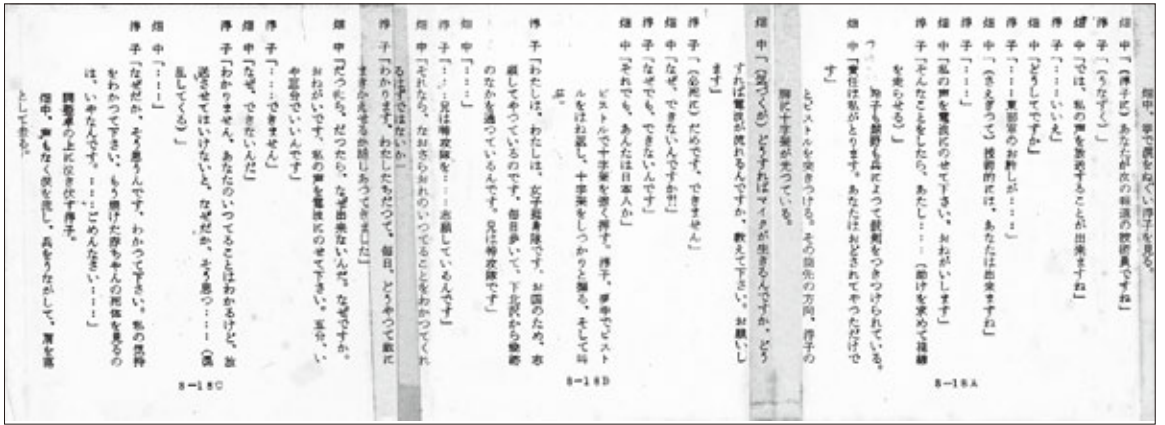 畑中、手で涙をぬぐい淳子を見る。
畑　中「(淳子に)あなたが次の報道の技術員ですね」
淳　子「(うなずく)」
畑　中「では、私の声を放送することが出来ますね」
淳　子「‥‥いいえ」
畑　中「どうしてですか」
淳　子「‥‥東部軍のお許しが‥‥」
畑　中「(さえぎつて)技術的には、あなたは出来ますね」
淳　子「‥‥」
畑　中「私の声を電波にのせて下さい、おねがいします」
淳　子「そんなことをしたら、あたし‥‥(助けを求めて視線
を走らせる)」
も兵によつて銃剣をつきつけられている。
畑　中「責任は私がとります。あなたはおどされてやつただけで
す」
とピストルを突きつける。その筒先の方向、淳子の
胸に十字架が光つている。
畑　中「(気づくが)どうすればマイクが生きるんですか、どう
すれば電波が流れるんですか、教えて下さい。お願いし
ます」
淳　子「(必死に)だめです、できません」
畑　中「なぜ、できないんですか?!」
淳　子「なぜでも、できないんです」
畑　中「それでも、あんたは日本人か」
ピストルで十字架を強く押す。淳子、夢中でピスト
ルをはね返し、十字架をしつかりと握る、そして叫
ぶ。
淳　子「わたしは、わたしは、女子挺身隊です、お国のため、志
願してやつているのです、毎日歩いて、下北沢から焼跡
のなかを通つているんです。兄は特攻隊です」
畑　中「‥‥」
淳　子「‥‥兄は特攻隊を‥‥志願しているんです」
畑　中「それなら、なおさらおれのいつてることをわかつてくれ
るはずではないか」
淳　子「わかります、わたしたちだつて、毎日、どうやつて敵に
まきかえせるか話しあつてきました」
畑　中「だつたら、だつたら、なぜ出来ないんだ。なぜですか。
おねがいです、私の声を電波にのせて下さい。五分、い
や三分でいいんです」
淳　子「‥‥できません」
畑　中「なぜ、できないんだ」
淳　子「わかりません、あなたのいつてることはわかるけど、放
送させてはいけないと、なぜだか、そう思つ‥‥(混
乱してくる)」
畑　中「‥‥」
淳　子「なぜだか、そう思うんです、わかつて下さい。私の気持
をわかつて下さい、もう焼けた赤ちゃんの死体を見るの
は、いやなんです。‥‥ごめんなさい‥‥」
調整卓の上に泣き伏す淳子。
畑中、声もなく涙を流し、兵をうながして、肩を落
として去る。
8-18A
8-18B
8-18C